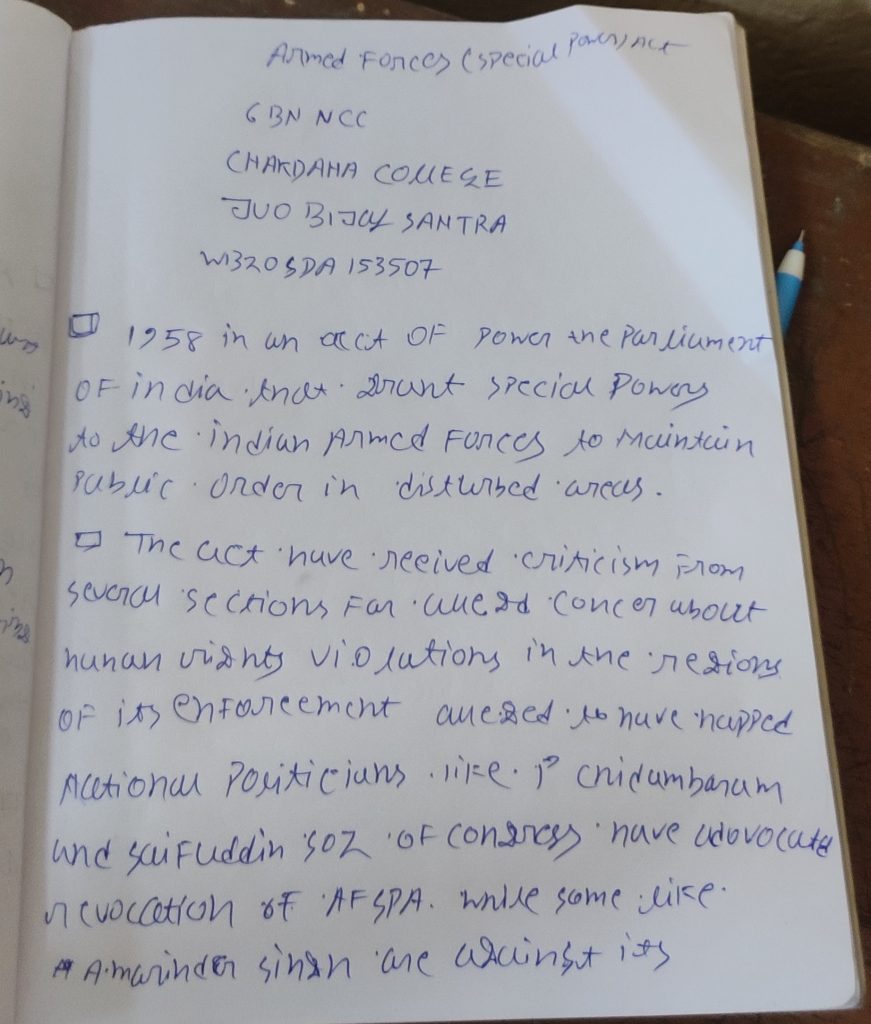 Armed Forces (special Powers) Act
6 BN NCC
CHAKDAHA COLLEGE
JUO BIJOY SANTRA
WB20SDA153507
1958 in an acct OF Power the Parliament
OF india that grant special Powers
to the indian Armed Forces to Maintain
Public Order in disturbed areas.
The act have reeived criticism From
several sections For alleged concer about
hunan rights violations in the regions
OF its enforeement alleged to have happed
National Politicians like P chidambaram
and saifuddin soz OF congress have adovocate
revoccation of AFSPA. while some like
Amarinder singh are against its